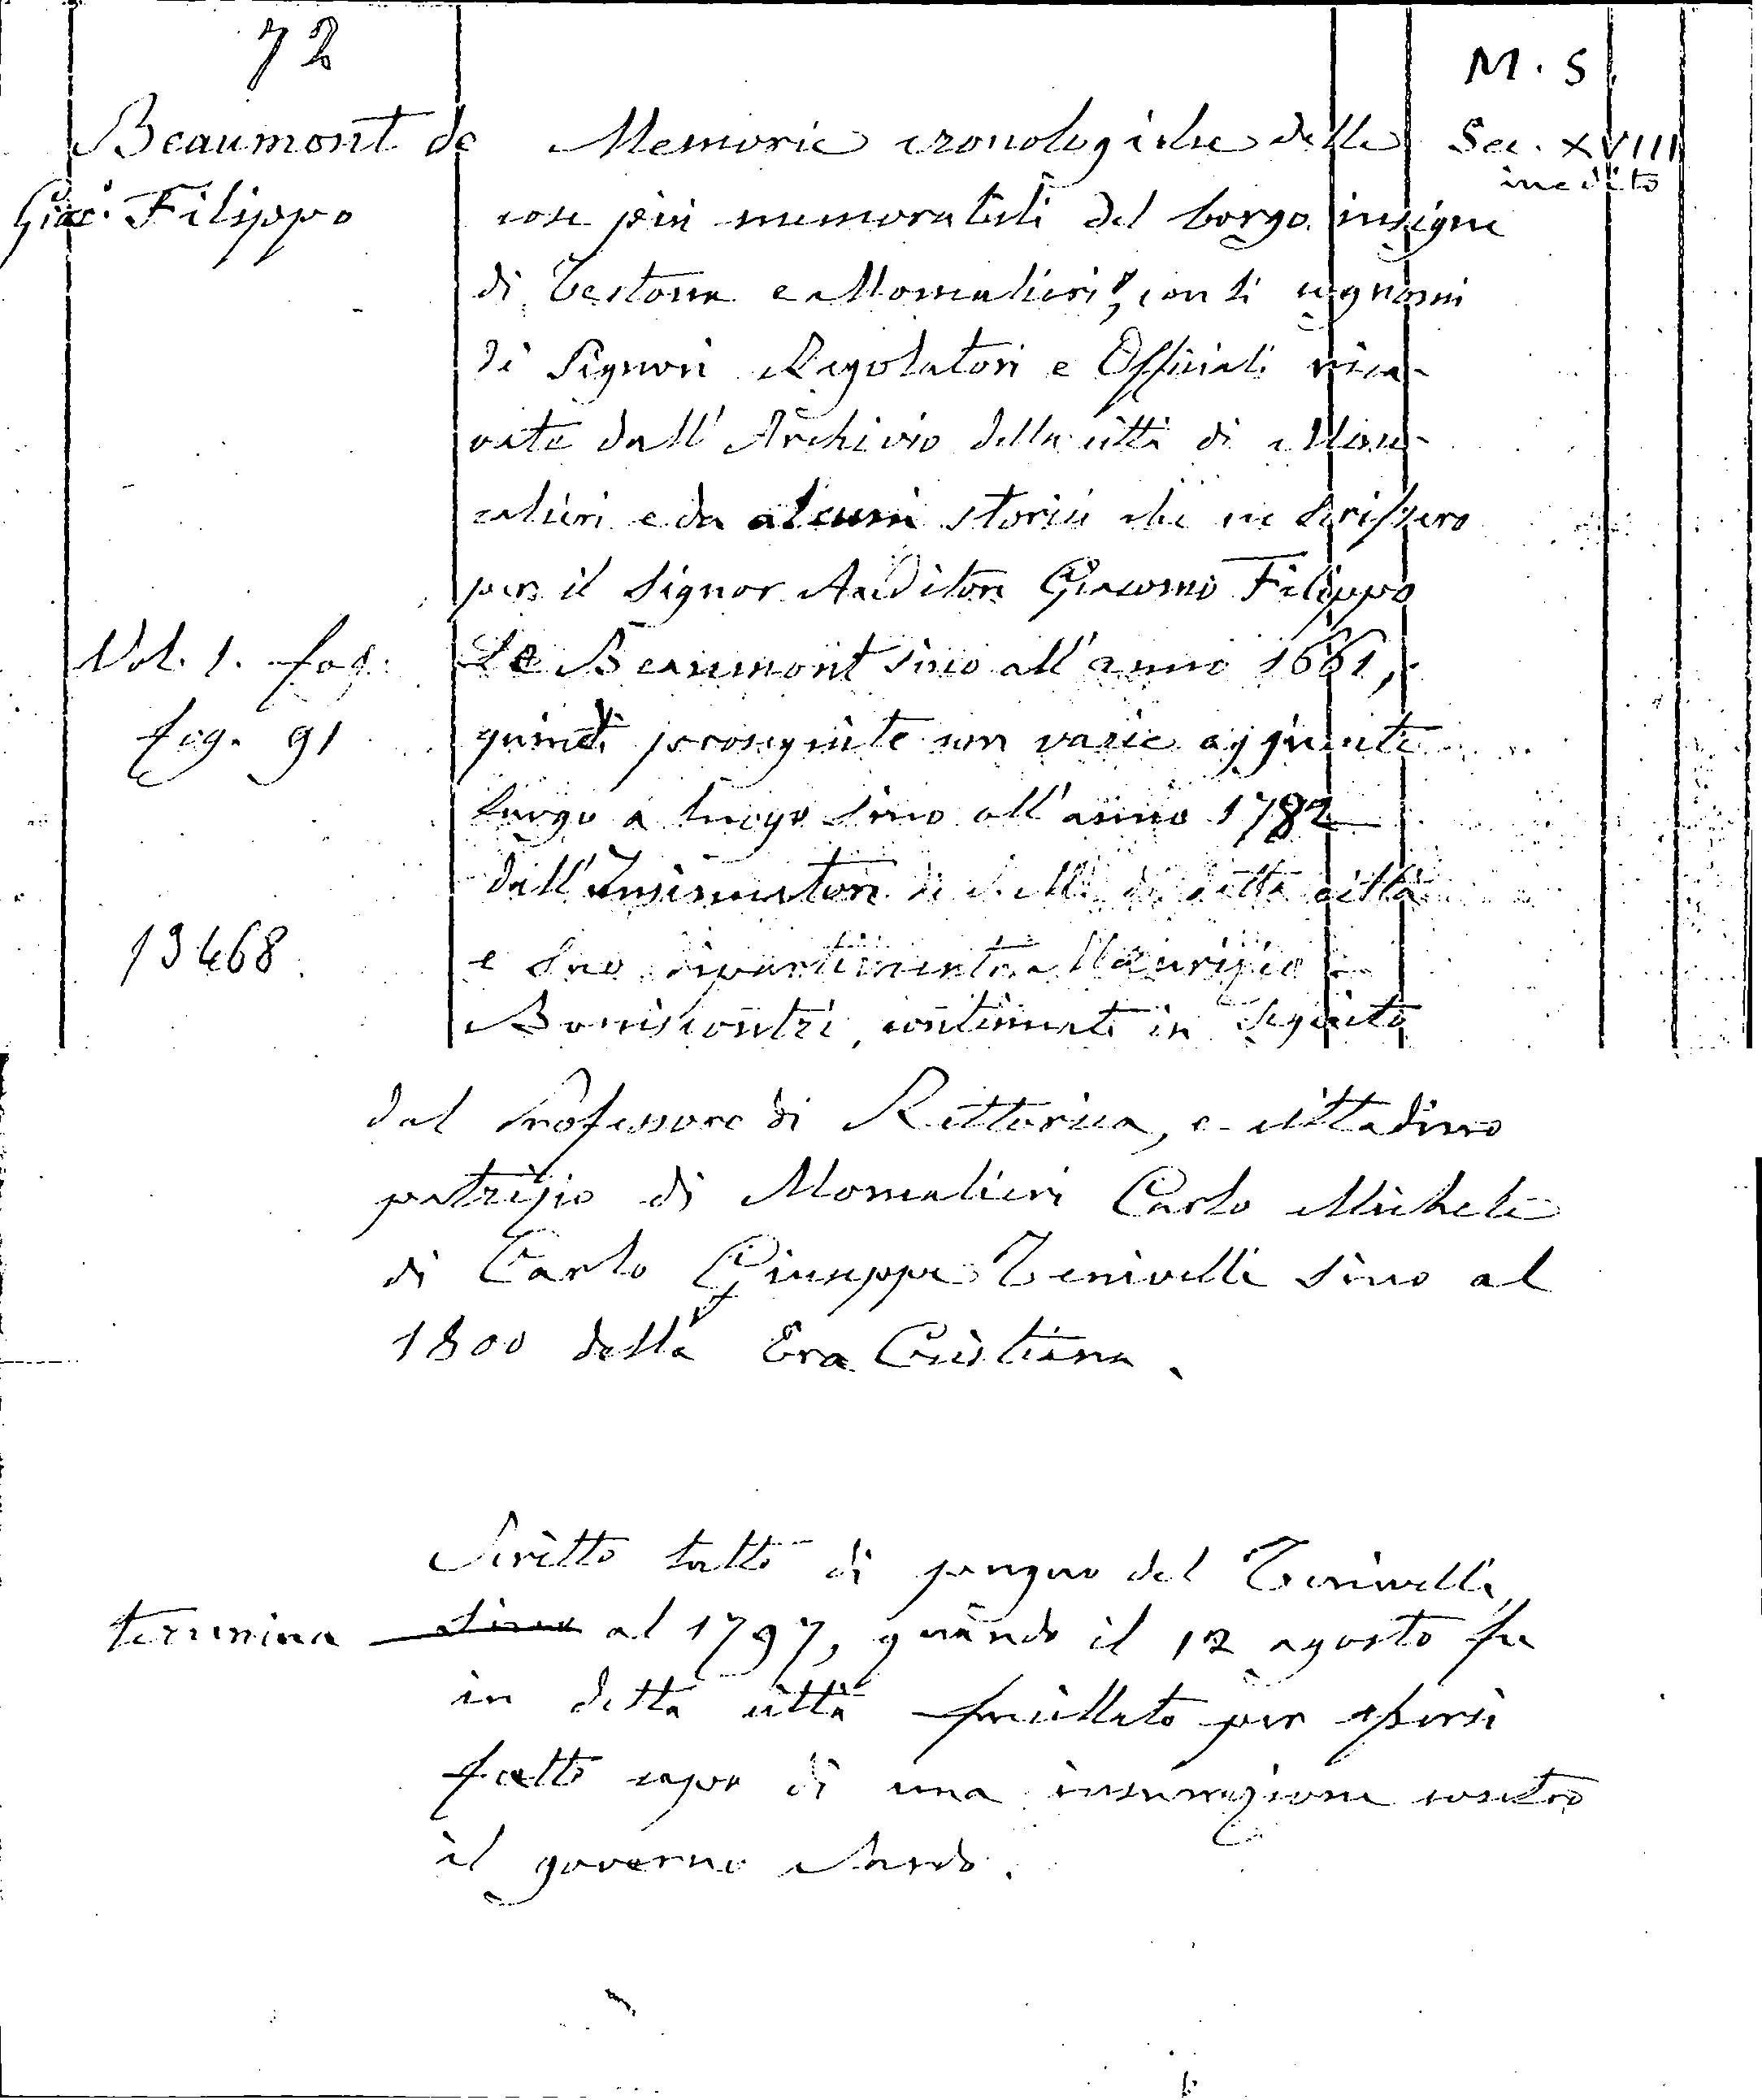 72
M. S.
Beaumont de
Giac.º Filippo
Sec. XVIII
inedito
Memorie cronologiche delle
cose più memorabili del borgo insigne
di Testona e Moncalieri, con li cognomi
di Signori Regolatori e Officiali rica-
vate dall' Archivio della città di Mon-
calieri e da alcuni storici che ne scrissero
per il Signor Auditore Giacomo Filippo
de Beaumont sino all' anno 1661,
quindi proseguite con varie aggiunte
luogo a luogo sino all' anno 1782
dall' Insinuatore di detta città
e suo dipartimento Maurizio
Boniscontri, continuate in seguito
dal Professore di Rettorica, e cittadino
patrizio di Moncalieri Carlo Michele
di Carlo Giuseppe Tenivelli sino al
1800 della Era Cristiana.
Vol. 1. fog.
fog. 91
13468
Scritto tutto di pugno del Tenivelli,
termina sino al 1797, quando il 12 agosto fu
in detta città fucillato per essersi
fatto capo di una insurrezione contro
il governo Sardo.